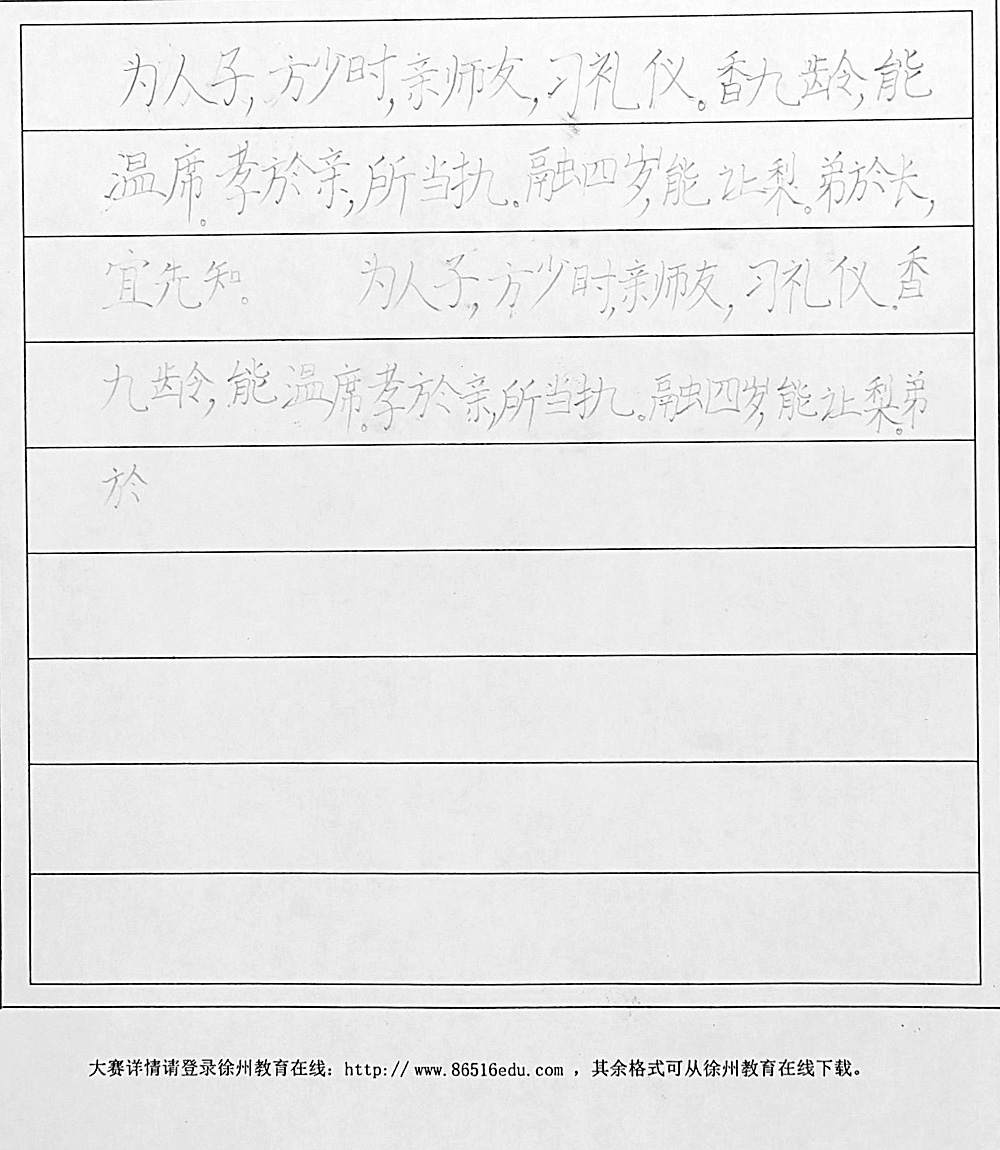 为人子,方少时,亲师友,习礼仪。香九龄,能
温席。孝於亲,所当执。融四岁,能让梨。弟於长,
宜先知。 为人子,方少时,亲师友,习礼仪。香
九龄,能温席。孝於亲,所当执。融四岁,能让梨。弟
於
大赛详情请登录徐州教育在线：http://www.86516edu.com ，其余格式可从徐州教育在线下载。